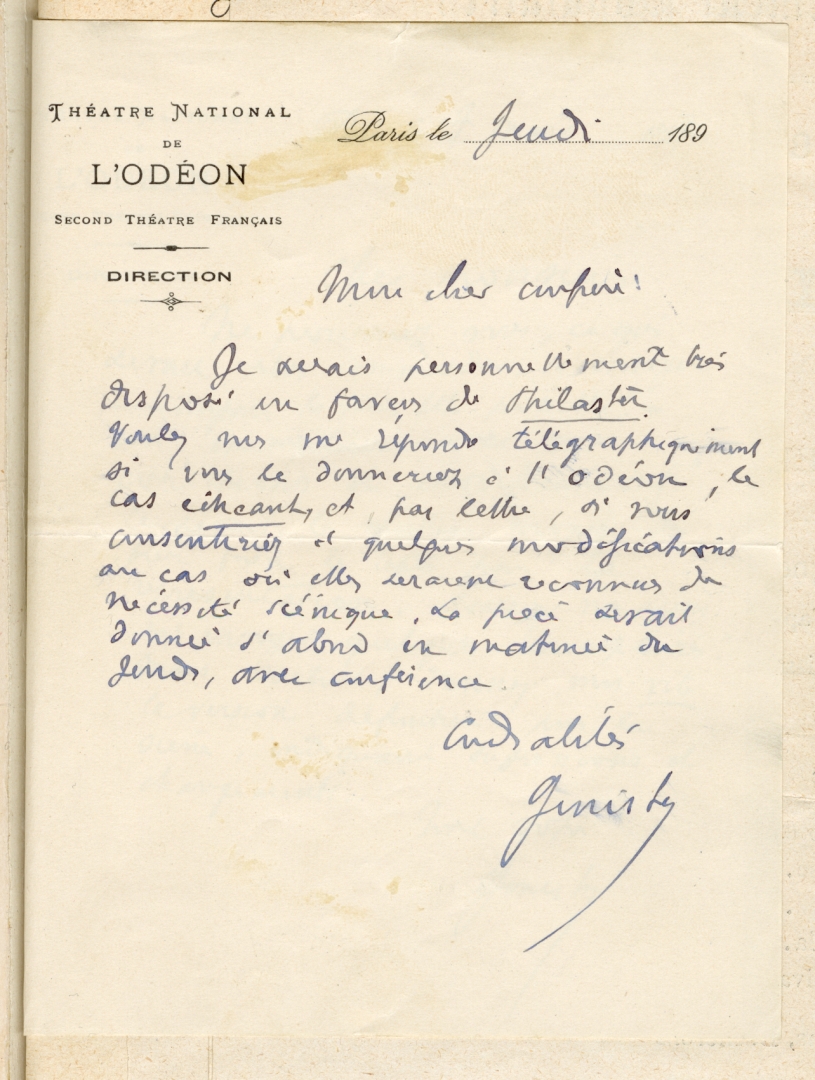 THÉATRE NATIONAL
DE
L'ODÉON
SECOND THÉATRE FRANÇAIS
DIRECTION
Paris le Jeudi 189
Mon cher confrère!
Je serais personnellement très
disposé en faveur de Philaster.
Voulez vous me répondre télégraphiquement
si vous le donneriez à l'Odéon, le
cas échéant, et, par lettre, si vous
consentiriez à quelques modifications
au cas où elles seraient reconnues de
nécessité scénique. La pièce serait
donnée d'abord en matinée du
Jeudi, avec conférence.
Cordialités
Ginisty